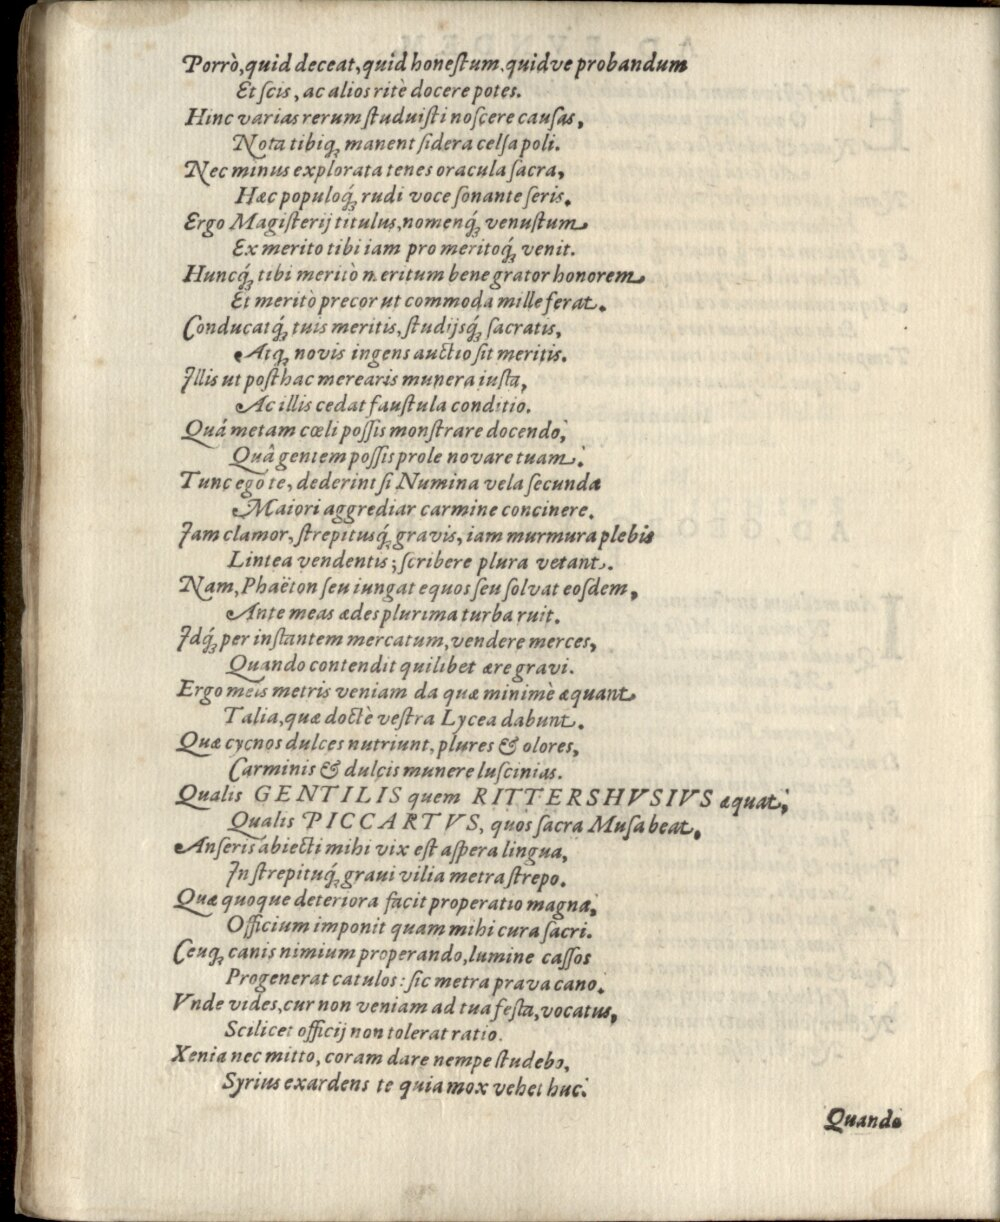 Porrò, quid deceat, quid honeſtum, quidve probandum
Et ſcis, ac alios ritè docere potes.
Hinc varias rerum ſtuduiſti noſcere cauſas,
Nota tibiq́ꝫ manent ſidera celſa poli.
Nec minus explorata tenes oracula ſacra,
Hæc populoq́ꝫ rudi voce ſonante ſeris.
Ergo Magiſterij titulus, nomenq́ꝫ venuſtum
Ex merito tibi iam pro meritoq́ꝫ venit.
Huncq́ꝫ tibi meritò meritum bene grator honorem
Et meritò precor ut commoda mille ferat.
Conducatq́ꝫ tuis meritis, ſtudijsq́ꝫ ſacratis,
Atq́ꝫ novis ingens auctio ſit meritis.
Illis ut poſthac merearis munera iuſta,
Ac illis cedat fauſtula conditio.
Quâ metam cœli poſſis monſtrare docendo,
Quâ gentem poſſis prole novare tuam.
Tunc ego te, dederint ſi Numina vela ſecunda
Maiori aggrediar carmine concinere.
Jam clamor, ſtrepituſq́ꝫ gravis, iam murmura plebis
Lintea vendentis; ſcribere plura vetant.
Nam, Phaëton ſeu iungat equos ſeu ſolvat eoſdem,
Ante meas ædes plurima turba ruit.
Idq́ꝫ per inſtantem mercatum, vendere merces,
Quando contendit quilibet ære gravi.
Ergo meis metris veniam da quæ minimè æquant
Talia, quæ doctè veſtra Lycea dabunt.
Quæ cycnos dulces nutriunt, plures & olores,
Carminis & dulcis munere luſcinias.
Qualis GENTILIS quem RITTERSHVSIVS æquat,
Qualis PICCARTVS, quos ſacra Muſa beat,
Anſeris abiecti mihi vix eſt aſpera lingua,
In ſtrepituq́ꝫ graui vilia metra ſtrepo.
Quæ quoque deteriora facit properatio magna,
Officium imponit quam mihi cura ſacri.
Ceuq́ꝫ canis nimium properando, lumine caſſos
Progenerat catulos: ſic metra prava cano.
Vnde vides, cur non veniam ad tua feſta, vocatus,
Scilicet officij non tolerat ratio.
Xenia nec mitto, coram dare nempe ſtudebo,
Syrius exardens te quia mox vehet huc.
Quando